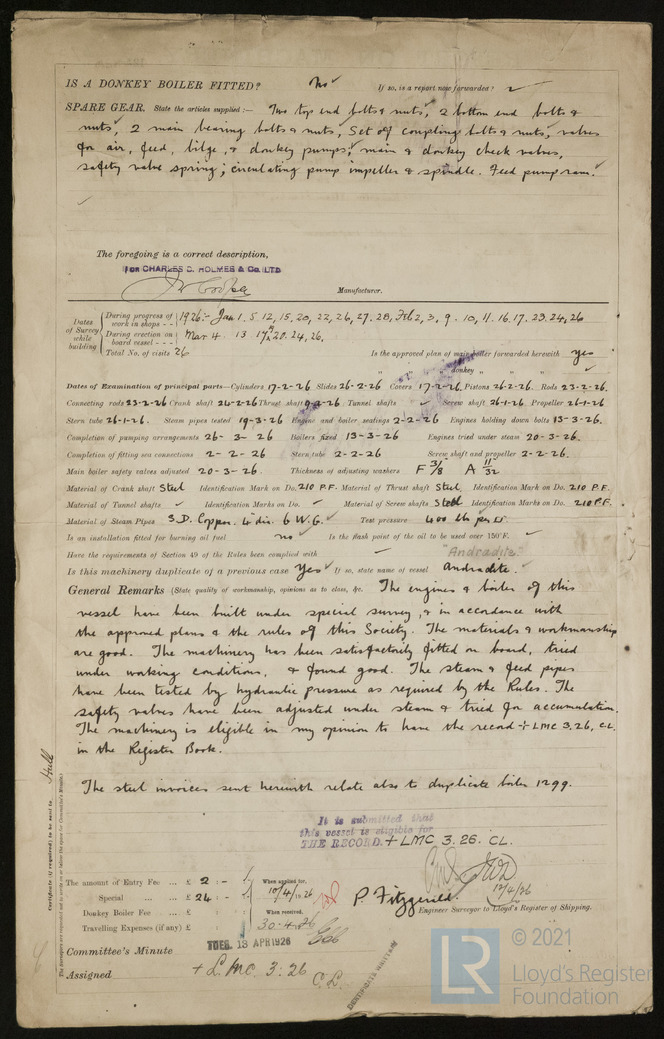 IS A DONKEY BOILER FITTED? No ✓ If so, is a report now forwarded? ✓
SPARE GEAR. State the articles supplied :— Two top end bolts & nuts, 2 bottom end bolts &
nuts, 2 main bearing bolts & nuts, Set of coupling bolts & nuts, valves
for air, feed, bilge, & donkey pumps, main & donkey check valves,
safety valve spring; circulating pump impeller & spindle. Feed pump ram. ✓
✓
The foregoing is a correct description,
For CHARLES D. HOLMES & Co. LTD
Manufacturer.
Dates of Survey while building
During progress of work in shops - - 1926:- Jan 1. 5 12, 15, 20, 22, 26, 27. 28, Feb 2, 3, 9. 10, 11. 16. 17. 23. 24, 26
During erection on board vessel - - - Mar 4. 13 19 20. 24, 26,
Total No. of visits 26
Is the approved plan of main boiler forwarded herewith yes
" " donkey " " " ✓
Dates of Examination of principal parts—Cylinders 17-2-26 Slides 26-2-26 Covers 17-2-26 Pistons 26-2-26. Rods 23-2-26.
Connecting rods 23-2-26 Crank shaft 24-2-26 Thrust shaft 9-2-26. Tunnel shafts ✓ Screw shaft 26-1-26. Propeller 26-1-26
Stern tube 26-1-26. Steam pipes tested 19-3-26 Engine and boiler seatings 2-2-26 Engines holding down bolts 13-3-26.
Completion of pumping arrangements 26-3-26 Boilers fixed 13-3-26 Engines tried under steam 20-3-26.
Completion of fitting sea connections 2-2-26 Stern tube 2-2-26 Screw shaft and propeller 2-2-26.
Main boiler safety valves adjusted 20-3-26. Thickness of adjusting washers F 3/8 A 11/32
Material of Crank shaft Steel Identification Mark on Do. 210 P.F. Material of Thrust shaft Steel Identification Mark on Do. 210 P.F.
Material of Tunnel shafts ✓ Identification Marks on Do. ✓ Material of Screw shafts Steel Identification Marks on Do. 210 P.F.
Material of Steam Pipes S.D. Copper. 4 dia. 6 W.G. ✓ Test pressure 400 lbs per □"
Is an installation fitted for burning oil fuel no ✓ Is the flash point of the oil to be used over 150°F. ✓
Have the requirements of Section 49 of the Rules been complied with ✓
"Andradite"
Is this machinery duplicate of a previous case Yes ✓ If so, state name of vessel Andradite. ✓
General Remarks (State quality of workmanship, opinions as to class, &c. The engines & boiler of this
vessel have been built under special survey, & in accordance with
the approved plans & the rules of this Society. The materials & workmanship
are good. The machinery has been satisfactorily fitted on board, tried
under working conditions, & found good. The steam & feed pipes
have been tested by hydraulic pressure as required by the Rules. The
safety valves have been adjusted under steam & tried for accumulation.
The machinery is eligible in my opinion to have the record + LMC 3,26, CL
in the Register Book.
The steel invoices sent herewith relate also to duplicate boiler 1299.
It is submitted that
this vessel is eligible for
THE RECORD. + LMC 3. 26. CL.
12/4/26
The amount of Entry Fee ... £ 2 : - : When applied for,
Special ... ... £ 24 : - : 10/4/1926
Donkey Boiler Fee ... £ : : When received,
Travelling Expenses (if any) £ : : 30.4.1926
P. Fitzgerald.
Engineer Surveyor to Lloyd's Register of Shipping.
Committee's Minute TUES. 13 APR 1926
Assigned + L.M.C. 3. 26
C.L.
CERTIFICATE WRITTEN
Certificate (if required) to be sent to Hull
© 2021
Lloyd's Register
Foundation
LR